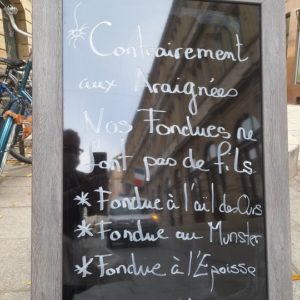 Contrairement
aux Araignées
Nos Fondues ne
font pas de fils
* Fondue à l'ail des Ours
* Fondue au Munster
* Fondue à l'Epoisse